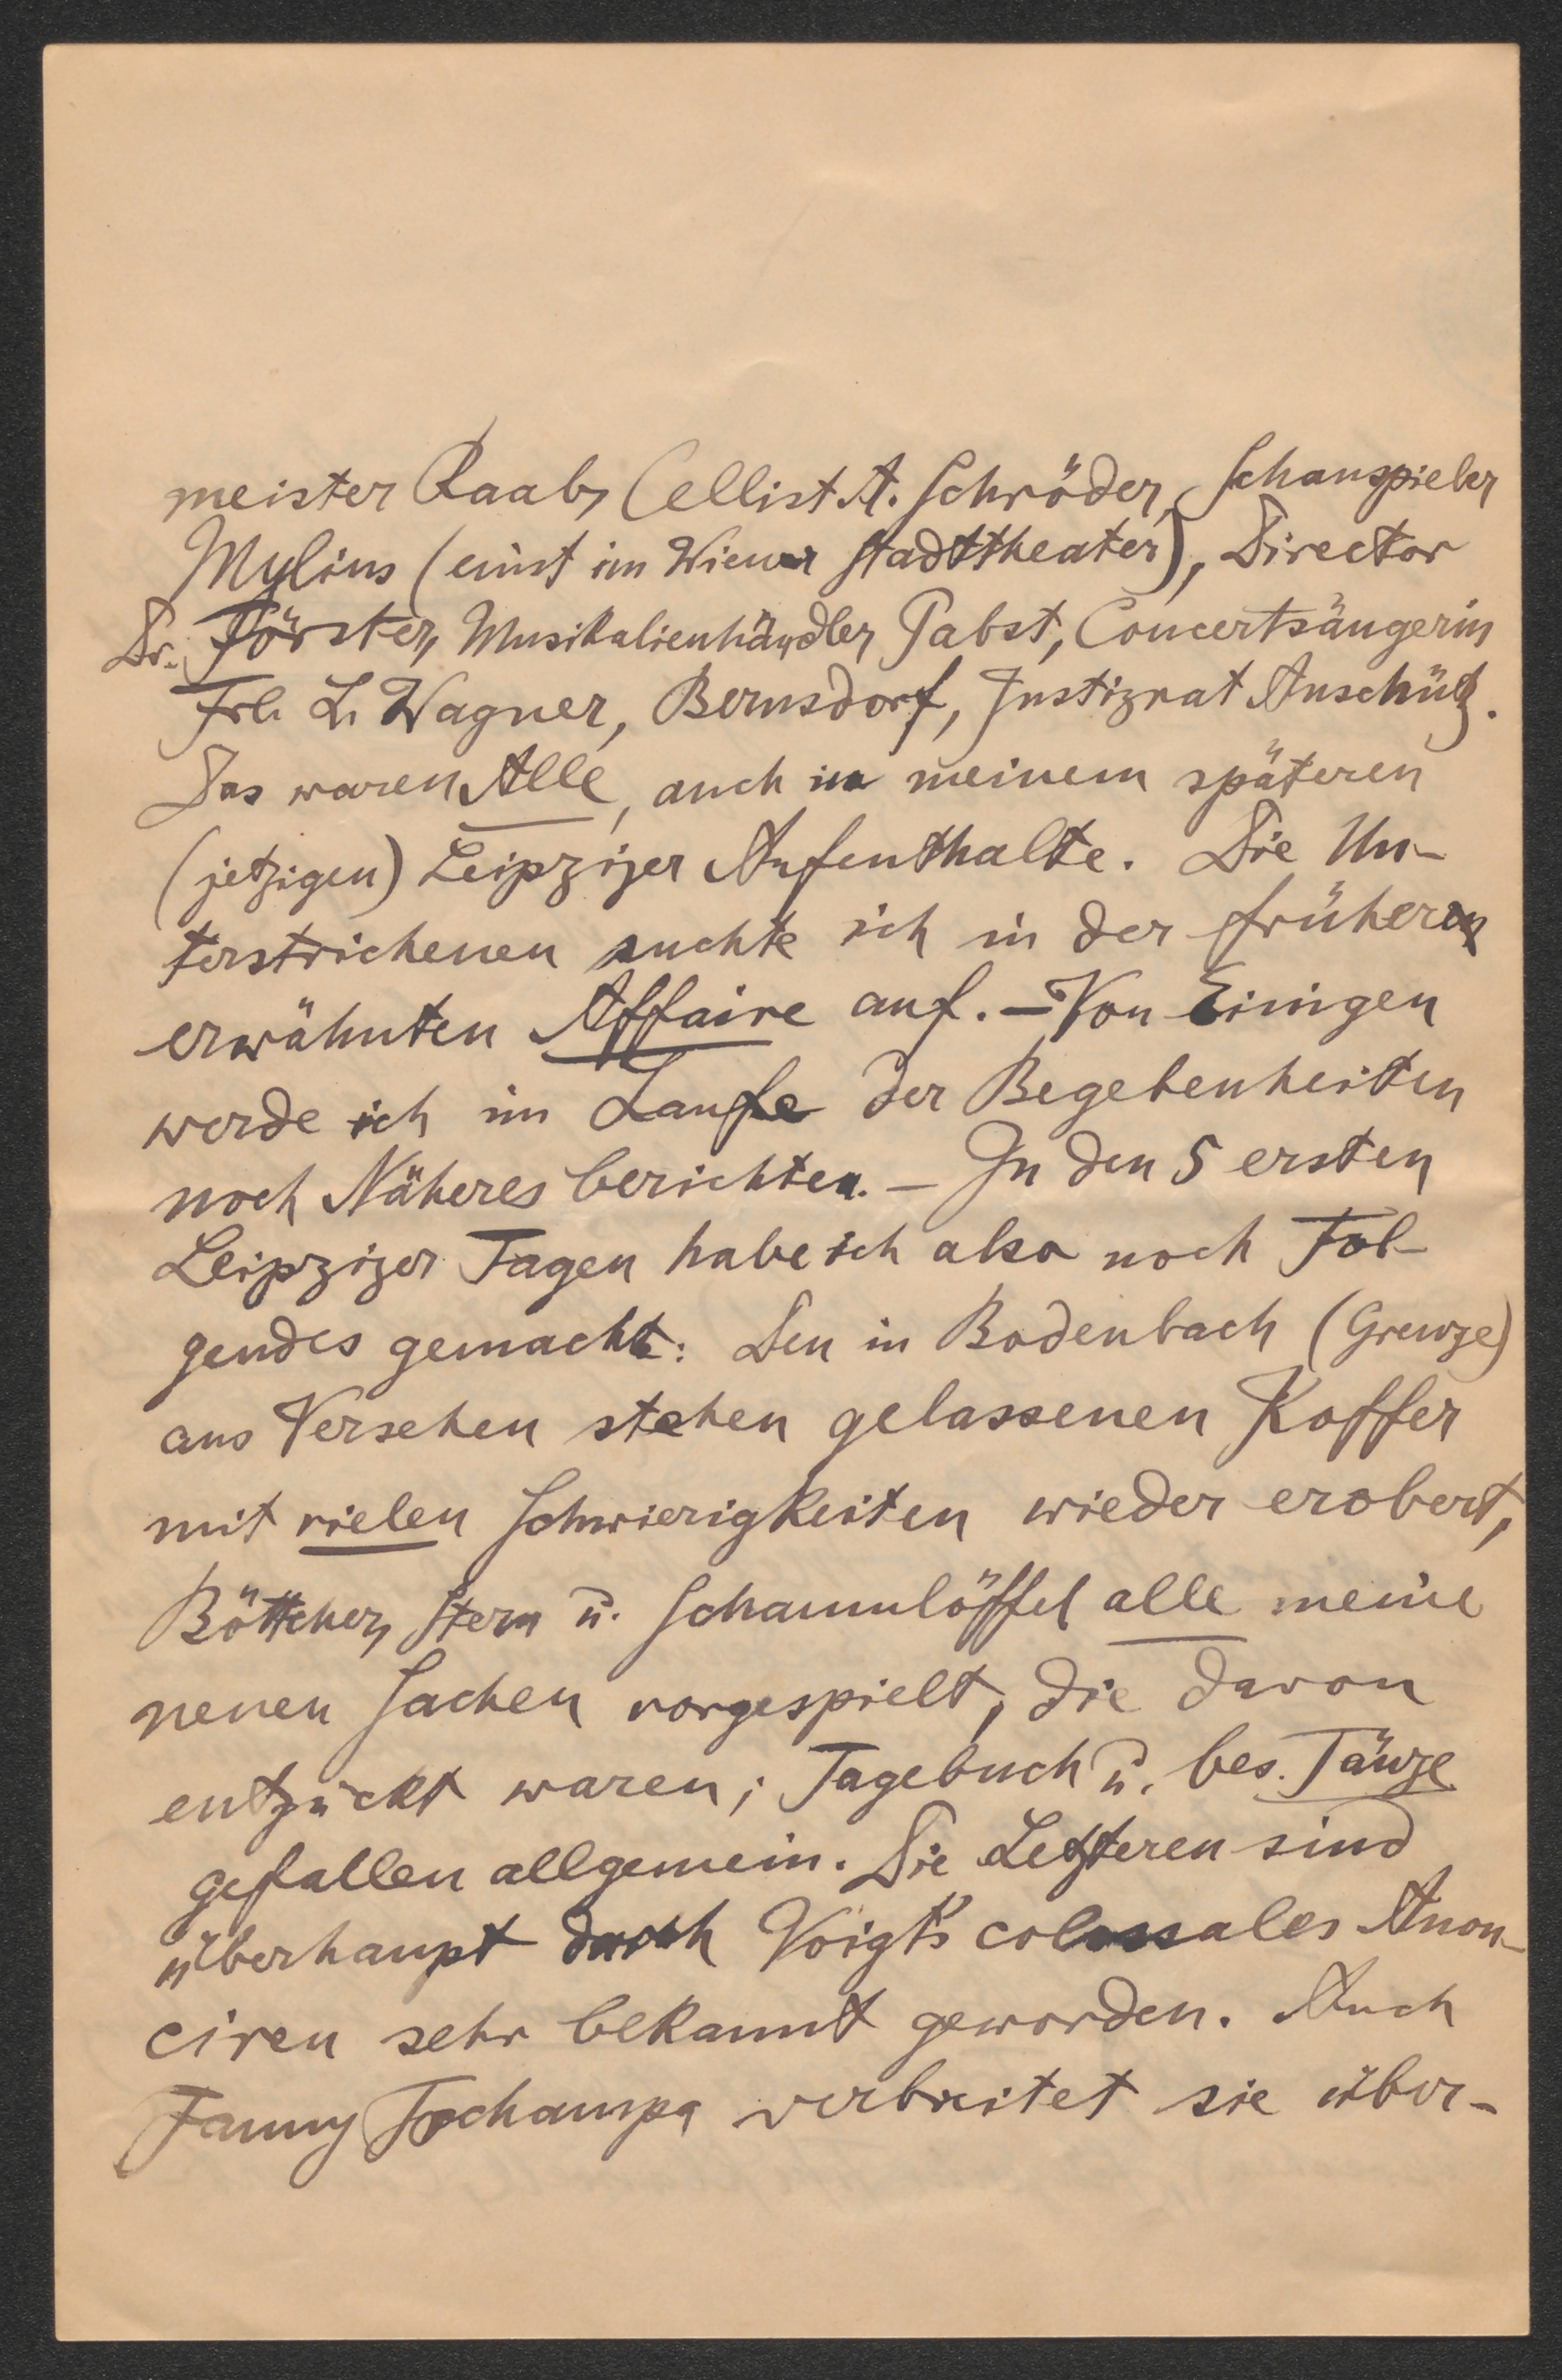 meister Raab, Cellist A. Schröder, Schauspieler
Mylius (einst im Wiener Stadttheater), Director
Dr. Förster, Musikalienhändler Pabst, Concertsängerin
Frl. L. Wagner, Bernsdorf, Justizrat Anschütz.
Das waren Alle, auch in meinem späteren
(jetzigen) Leipziger Aufenthalte. Die Un-
terstrichenen suchte ich in der früheren
erwähnten Affaire auf. – Von Einigen
werde ich im Laufe der Begebenheiten
noch Näheres berichten. – In den 5 ersten
Leipziger Tagen habe ich also noch Fol-
gendes gemacht: Den in Bodenbach (Grenze)
aus Versehen stehen gelassenen Koffer
mit vielen Schwierigkeiten wieder erobert,
Böttcher, Stern u. Schaumlöffel alle meine
neuen Sachen vorgespielt, die davon
entzückt waren; Tagebuch u. bes. Tänze
gefallen allgemein. Die Letzteren sind
überhaupt durch Voigt's colossales Anon-
ciren sehr bekannt geworden. Auch
Fanny verbreitet sie über-